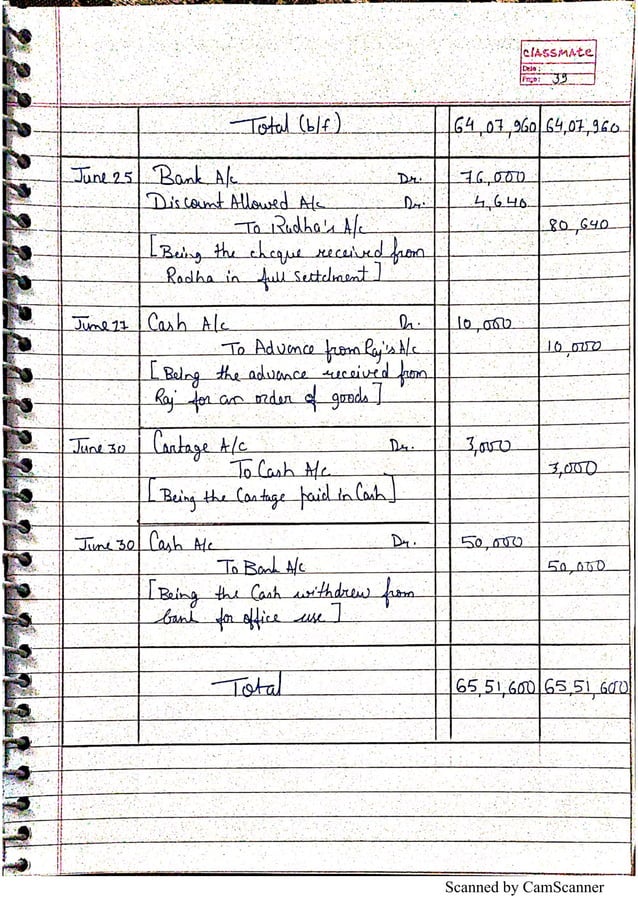 classmate
Date :
Page : 39
Total (b/f) 64,07,960 64,07,960
June 25 Bank A/c Dr. 76,000
Discount Allowed A/c Dr. 4,640
To Radha's A/c 80,640
[Being the cheque received from
Radha in full settlment]
June 27 Cash A/c Dr. 10,000
To Advance from Raj's A/c 10,000
[Being the advance received from
Raj for an order of goods]
June 30 Cartage A/c Dr. 3,000
To Cash A/c 3,000
[Being the Cartage paid in Cash]
June 30 Cash A/c Dr. 50,000
To Bank A/c 50,000
[Being the Cash withdrew from
bank for office use]
Total 65,51,600 65,51,600
Scanned by CamScanner